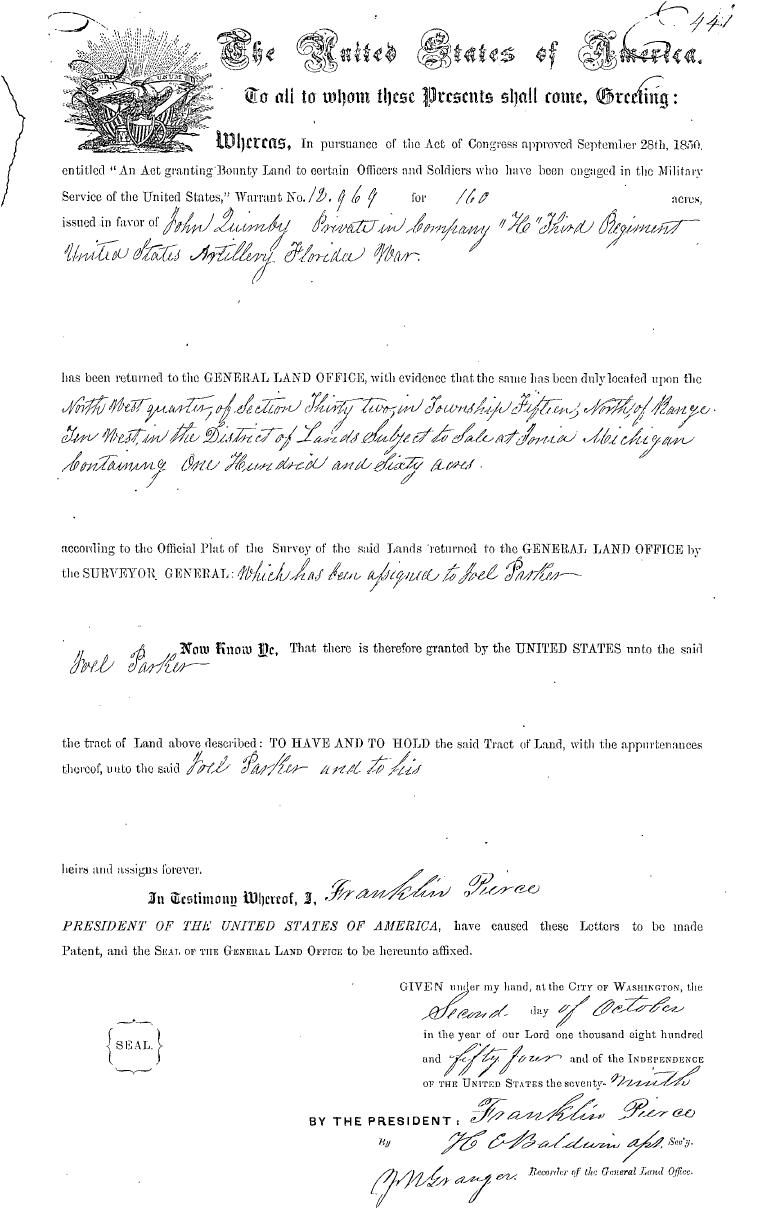 441
The United States of America.
To all to whom these Presents shall come, Greeting:
Whereas, In pursuance of the Act of Congress approved September 28th, 1850,
entitled "An Act granting Bounty Land to certain Officers and Soldiers who have been engaged in the Military
Service of the United States," Warrant No. 12.969 for 160 acres,
issued in favor of John Quimby Private in Company "H" Third Regiment
United States Artillery, Florida War.
has been returned to the GENERAL LAND OFFICE, with evidence that the same has been duly located upon the
North West quarter, of Section Thirty two, in Township Fifteen, North, of Range
Ten West, in the District of Lands Subject to Sale at Ionia Michigan
Containing One Hundred and Sixty acres.
according to the Official Plat of the Survey of the said Lands returned to the GENERAL LAND OFFICE by
the SURVEYOR GENERAL: Which has been assigned to Joel Parker
Now Know Ye, That there is therefore granted by the UNITED STATES unto the said
Joel Parker
the tract of Land above described: TO HAVE AND TO HOLD the said Tract of Land, with the appurtenances
thereof, unto the said Joel Parker and to his
heirs and assigns forever.
In Testimony Whereof, I, Franklin Pierce
PRESIDENT OF THE UNITED STATES OF AMERICA, have caused these Letters to be made
Patent, and the SEAL OF THE GENERAL LAND OFFICE to be hereunto affixed.
GIVEN under my hand, at the CITY OF WASHINGTON, the
Second day of October
in the year of our Lord one thousand eight hundred
and fifty four and of the INDEPENDENCE
OF THE UNITED STATES the seventy-ninth
SEAL.
BY THE PRESIDENT: Franklin Pierce
By H E Baldwin ass. Sec'y.
J N Granger. Recorder of the General Land Office.